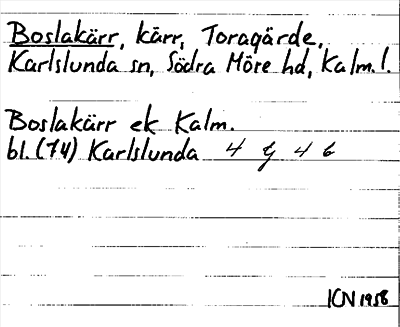 Boslakärr, kärr, Toragärde,
Karlslunda sn, Södra Möre hd, Kalm.l.
Boslakärr ek Kalm.
bl.(74) Karlslunda 4 g 4 b
ICN 1958